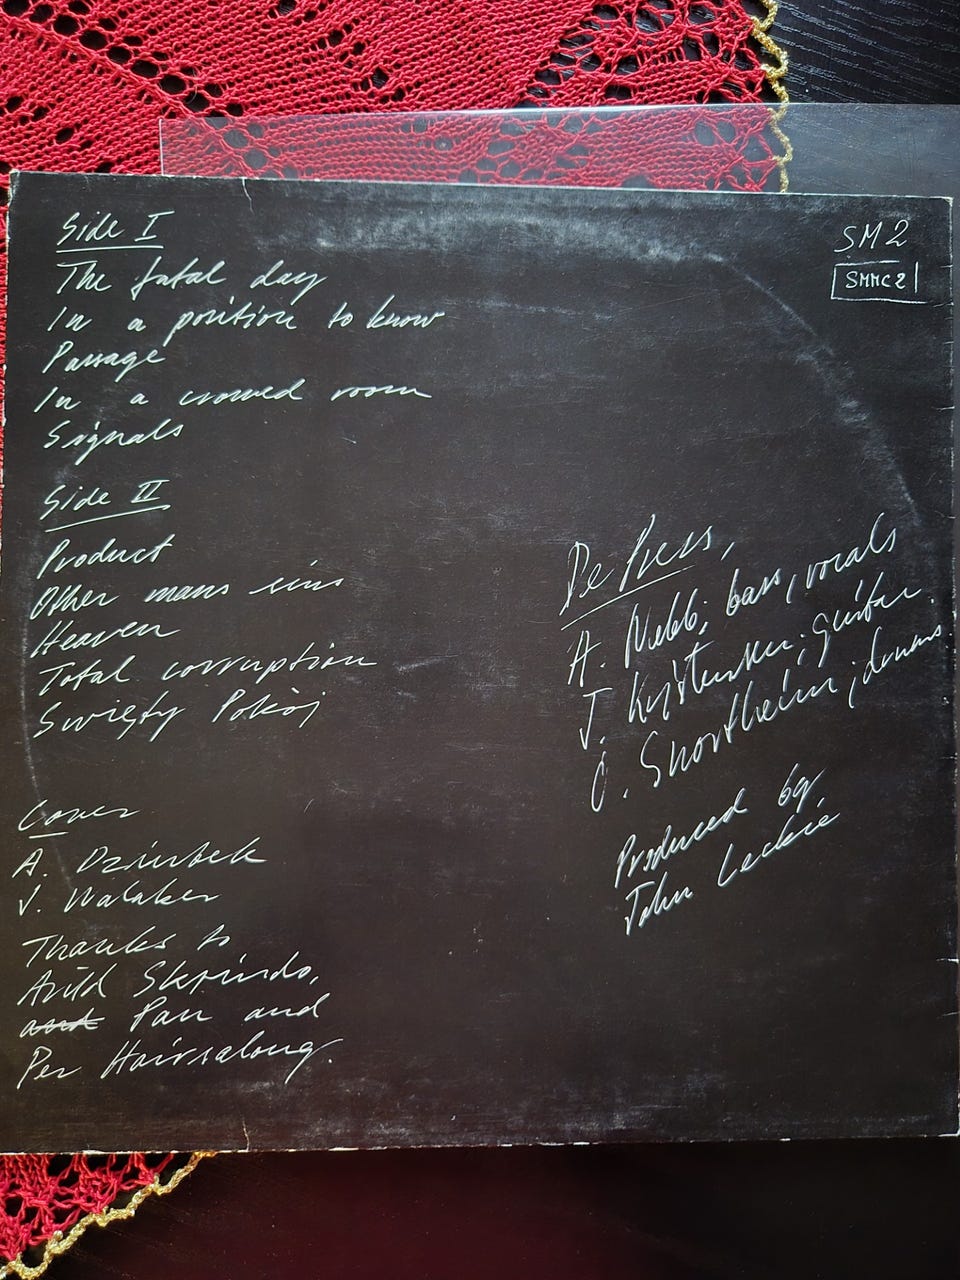 Side I
The fatal day
In a position to know
Passage
In a crowed room
Signals
Side II
Product
Other mans sins
Heaven
Total corruption
Święty Pokój
Cover
A. Dziubek
J. Walaker
Thanks to
Arild Skrindo,
and Pan and
Per Hairsalong.
SM2
SMMC2
De Press,
A. Nebb; bass, vocals
J. Kristensen; guitar
O. Snortheim; drums.
Produced by
John Leckie